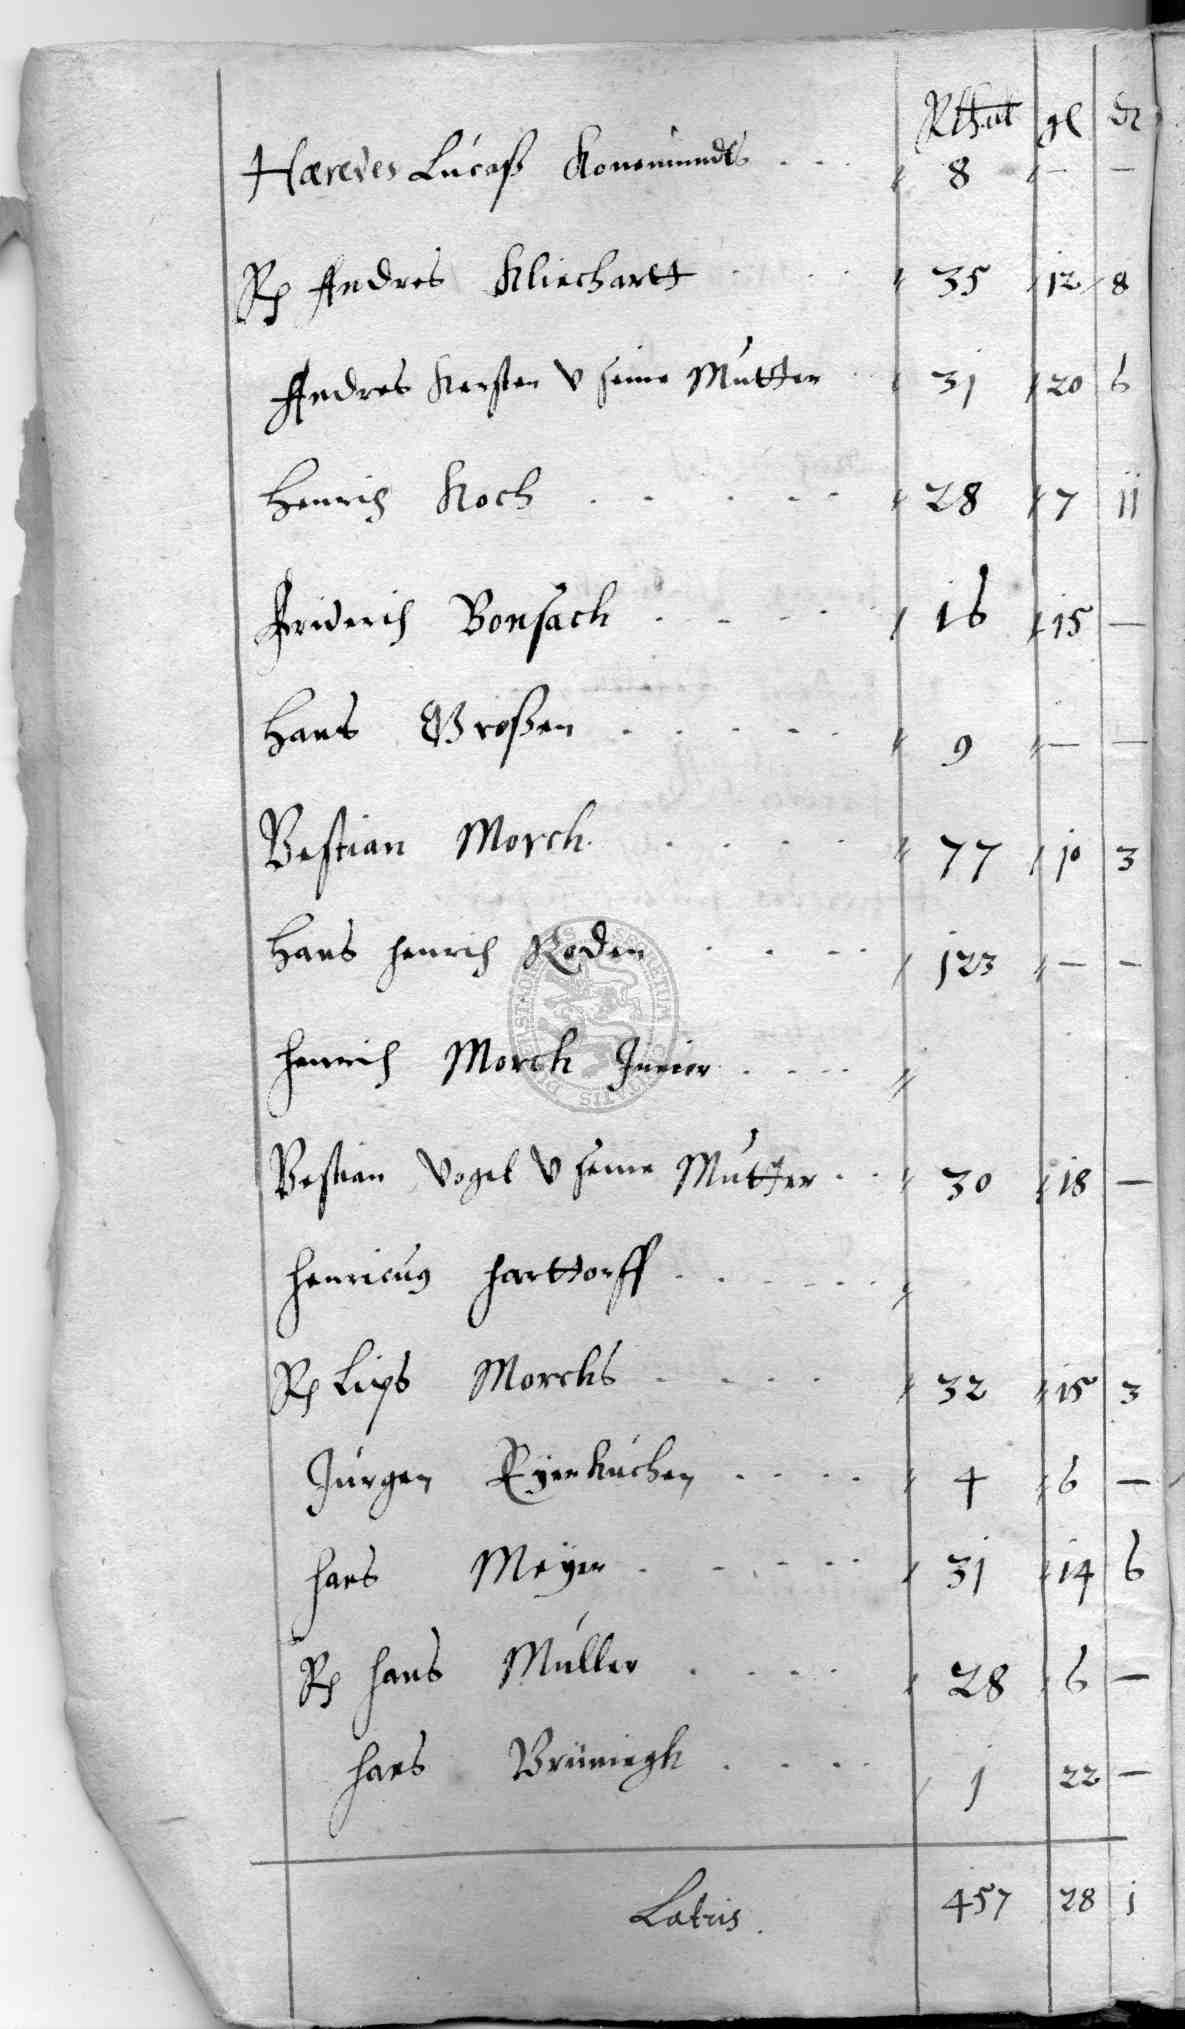 Rthal gl d
Hæredes Lucaß Konemundts . . . 8 — —
Rp Andres Kliechartt . . . 35 12 8
Andres Kersten v seine Mutter . 31 20 6
Henrich Koch . . . . . . 28 7 11
Friderich Bonsack . . . . . 16 15 —
Hans Großen . . . . . 9 — —
Bestian Morck . . . . . 77 10 3
Hans Henrich Roden . . . . 123 — —
Henrich Morck Junior . . . .
Bestian Vogel v seine Mutter . . 30 18 —
Henricus Harttorff . . . . . .
Rp Lips Morcks . . . . 32 15 3
Jurgen Eyerkuchen . . . . 4 6 —
Hans Meyer . . . . . 31 14 6
Rp Hans Müller . . . . 28 6 —
Hans Brüniegk . . . . 1 22 —
Latus . 457 28 1